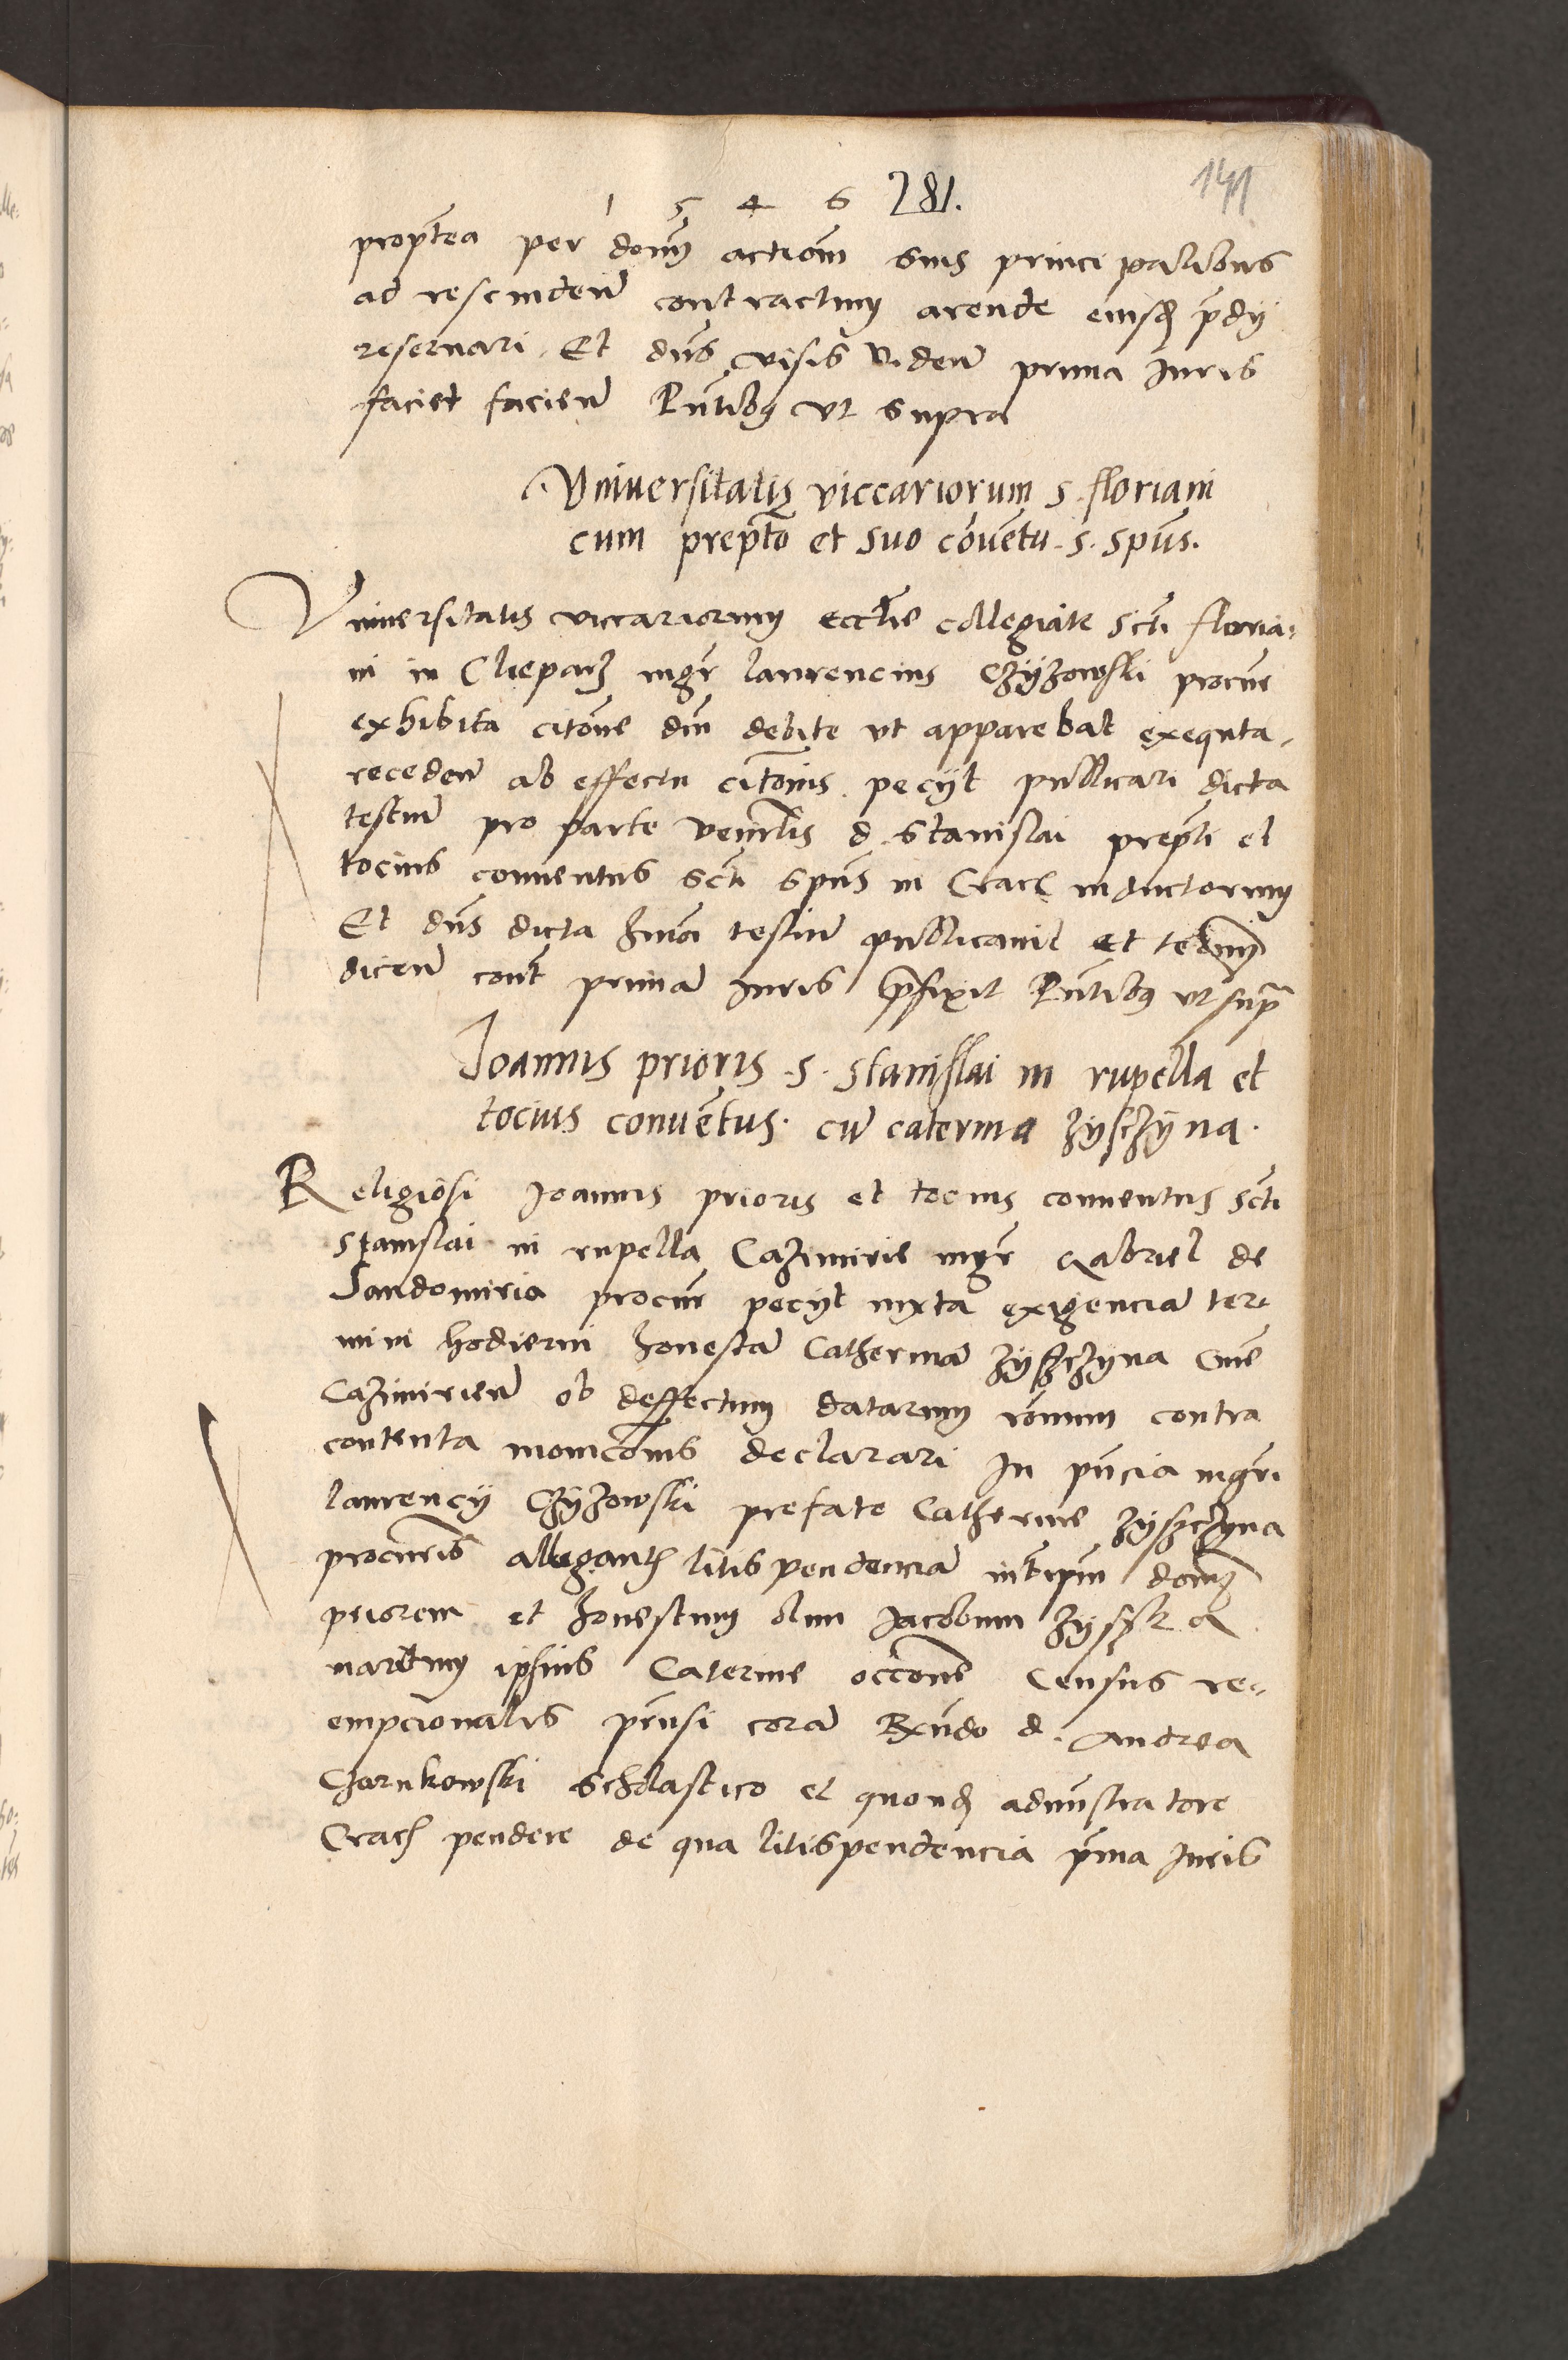 1 5 4 6 281.
141
propt̄ea per domȳ actiom̄ suis principalibus
ad rescinden̄ contractuȝ arende eiusdȝ p̄dy
reseruari. Et dn̄s visis viden̄ prima Juris
faciet facien̄ Pn̄tibȝ vt supra
Vniuersitatis viccariorum s. floriani
cum prep̄to et suo conuētu. s. spūs.
Vniuersitatis viccarioruȝ eccl̄ie collegiate Scti floria:
ni in Clieparȝ mgr̄ laurencius Czyzowski procur̄
exhibita citōne dn̄i debite vt apparebat exequta,
receden̄ ab effectu citōnis pecyt publicari dicta
testiū pro parte venerlis d. Stanislai prep̄ti et
tocius conuentus scti Spūs in Crac inductoruȝ
Et dn̄s dicta hm̄oi testiū publicauit et termȳ
dicen̄ cont̄ prima Juris p̄fixit Pn̄tibȝ vt supr̄
Joannis prioris .s. stanislai in rupella et
tocius conuētus. cū caterina zysczyna.
Religiosi Joannis prioris et tocius conuentus Scti
Stanislai in rupella Cazimirie mgr̄ Gabriel de
Sandomiria procur̄ pecyt iuxta exigenciā ter
mini hodierni honestā Catherinā zysczyna Ciuē
Cazimirien̄ ob deffectum dataruȝ rōnum contra
contenta monicōnis declarari In pn̄cia mgri
laurencij Czyzowski prefate Catherine zysczyna
procuris allegantȝ litis pendenciā int̄ ipm̄ domȳ
priorem et honestuȝ olim Jacobum zyszka
marituȝ ipsius Caterine occōne Census re-
empcionalis pn̄si corā Rx̄ndo d. Andrea
Czarnkowski Scholastico et quondȝ admīstratore
Cracȝ pendere de qua litispendencia pr̄ma Juris